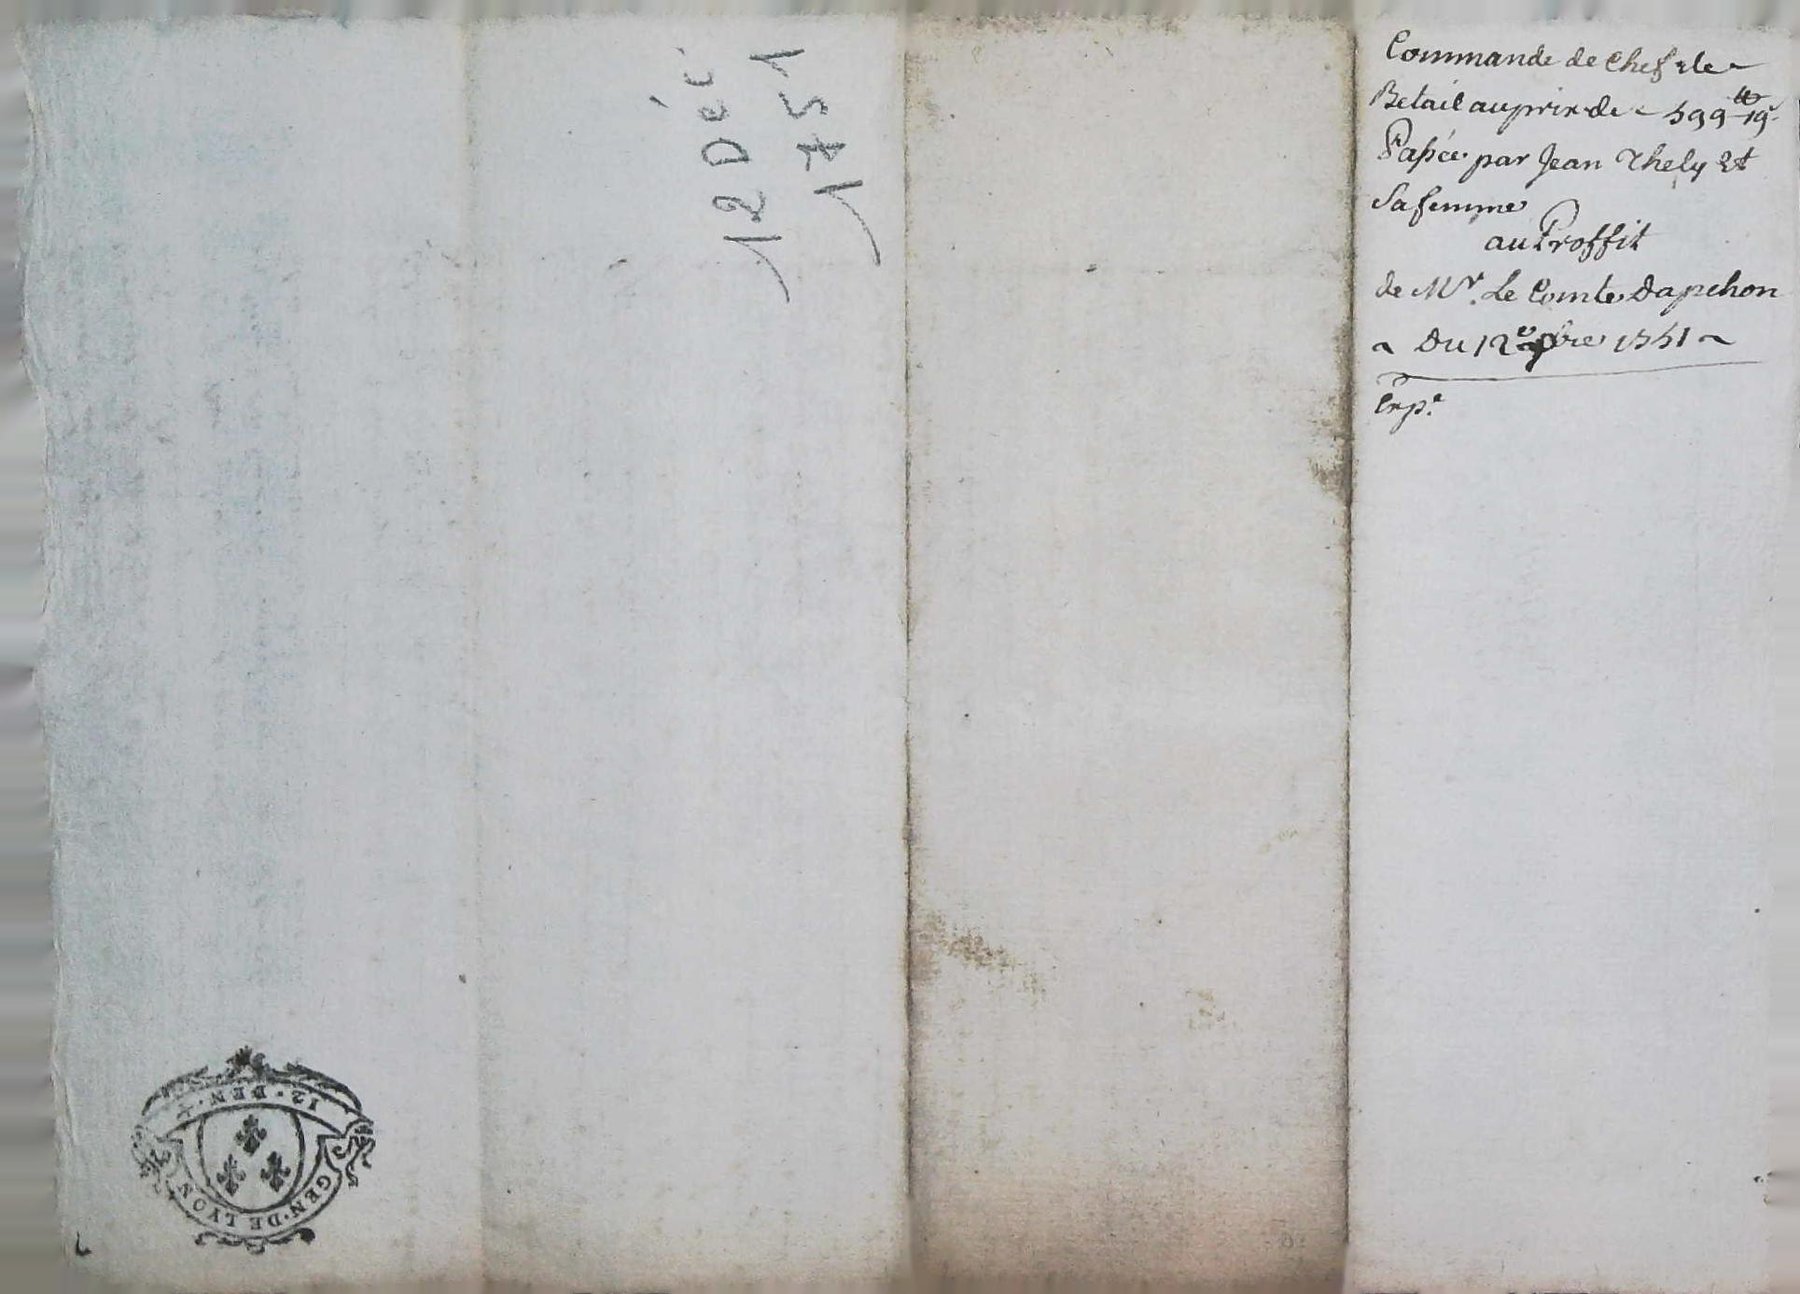 Commande de Chef de
Betail au prix de 599 ₶ 19ˢ
Passée par Jean Thely Et
Sa femme
au Proffit
de Mʳ. Le Comte Dapchon
Du 12ᵉ xbre 1751
Expᵉ.
12 Déc
1751
12 · DEN ·
GEN · DE LYON